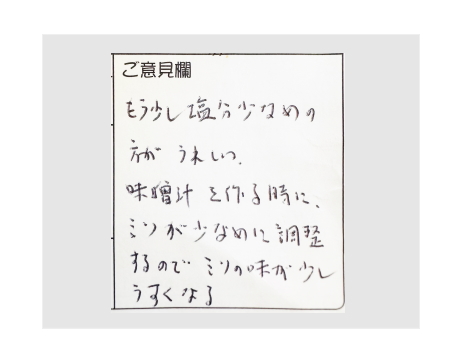 ご意見欄
もう少し塩分少なめの
方が うれしい.
味噌汁 を作る時に、
ミソが少なめに調整
するので ミソの味が少し
うすくなる